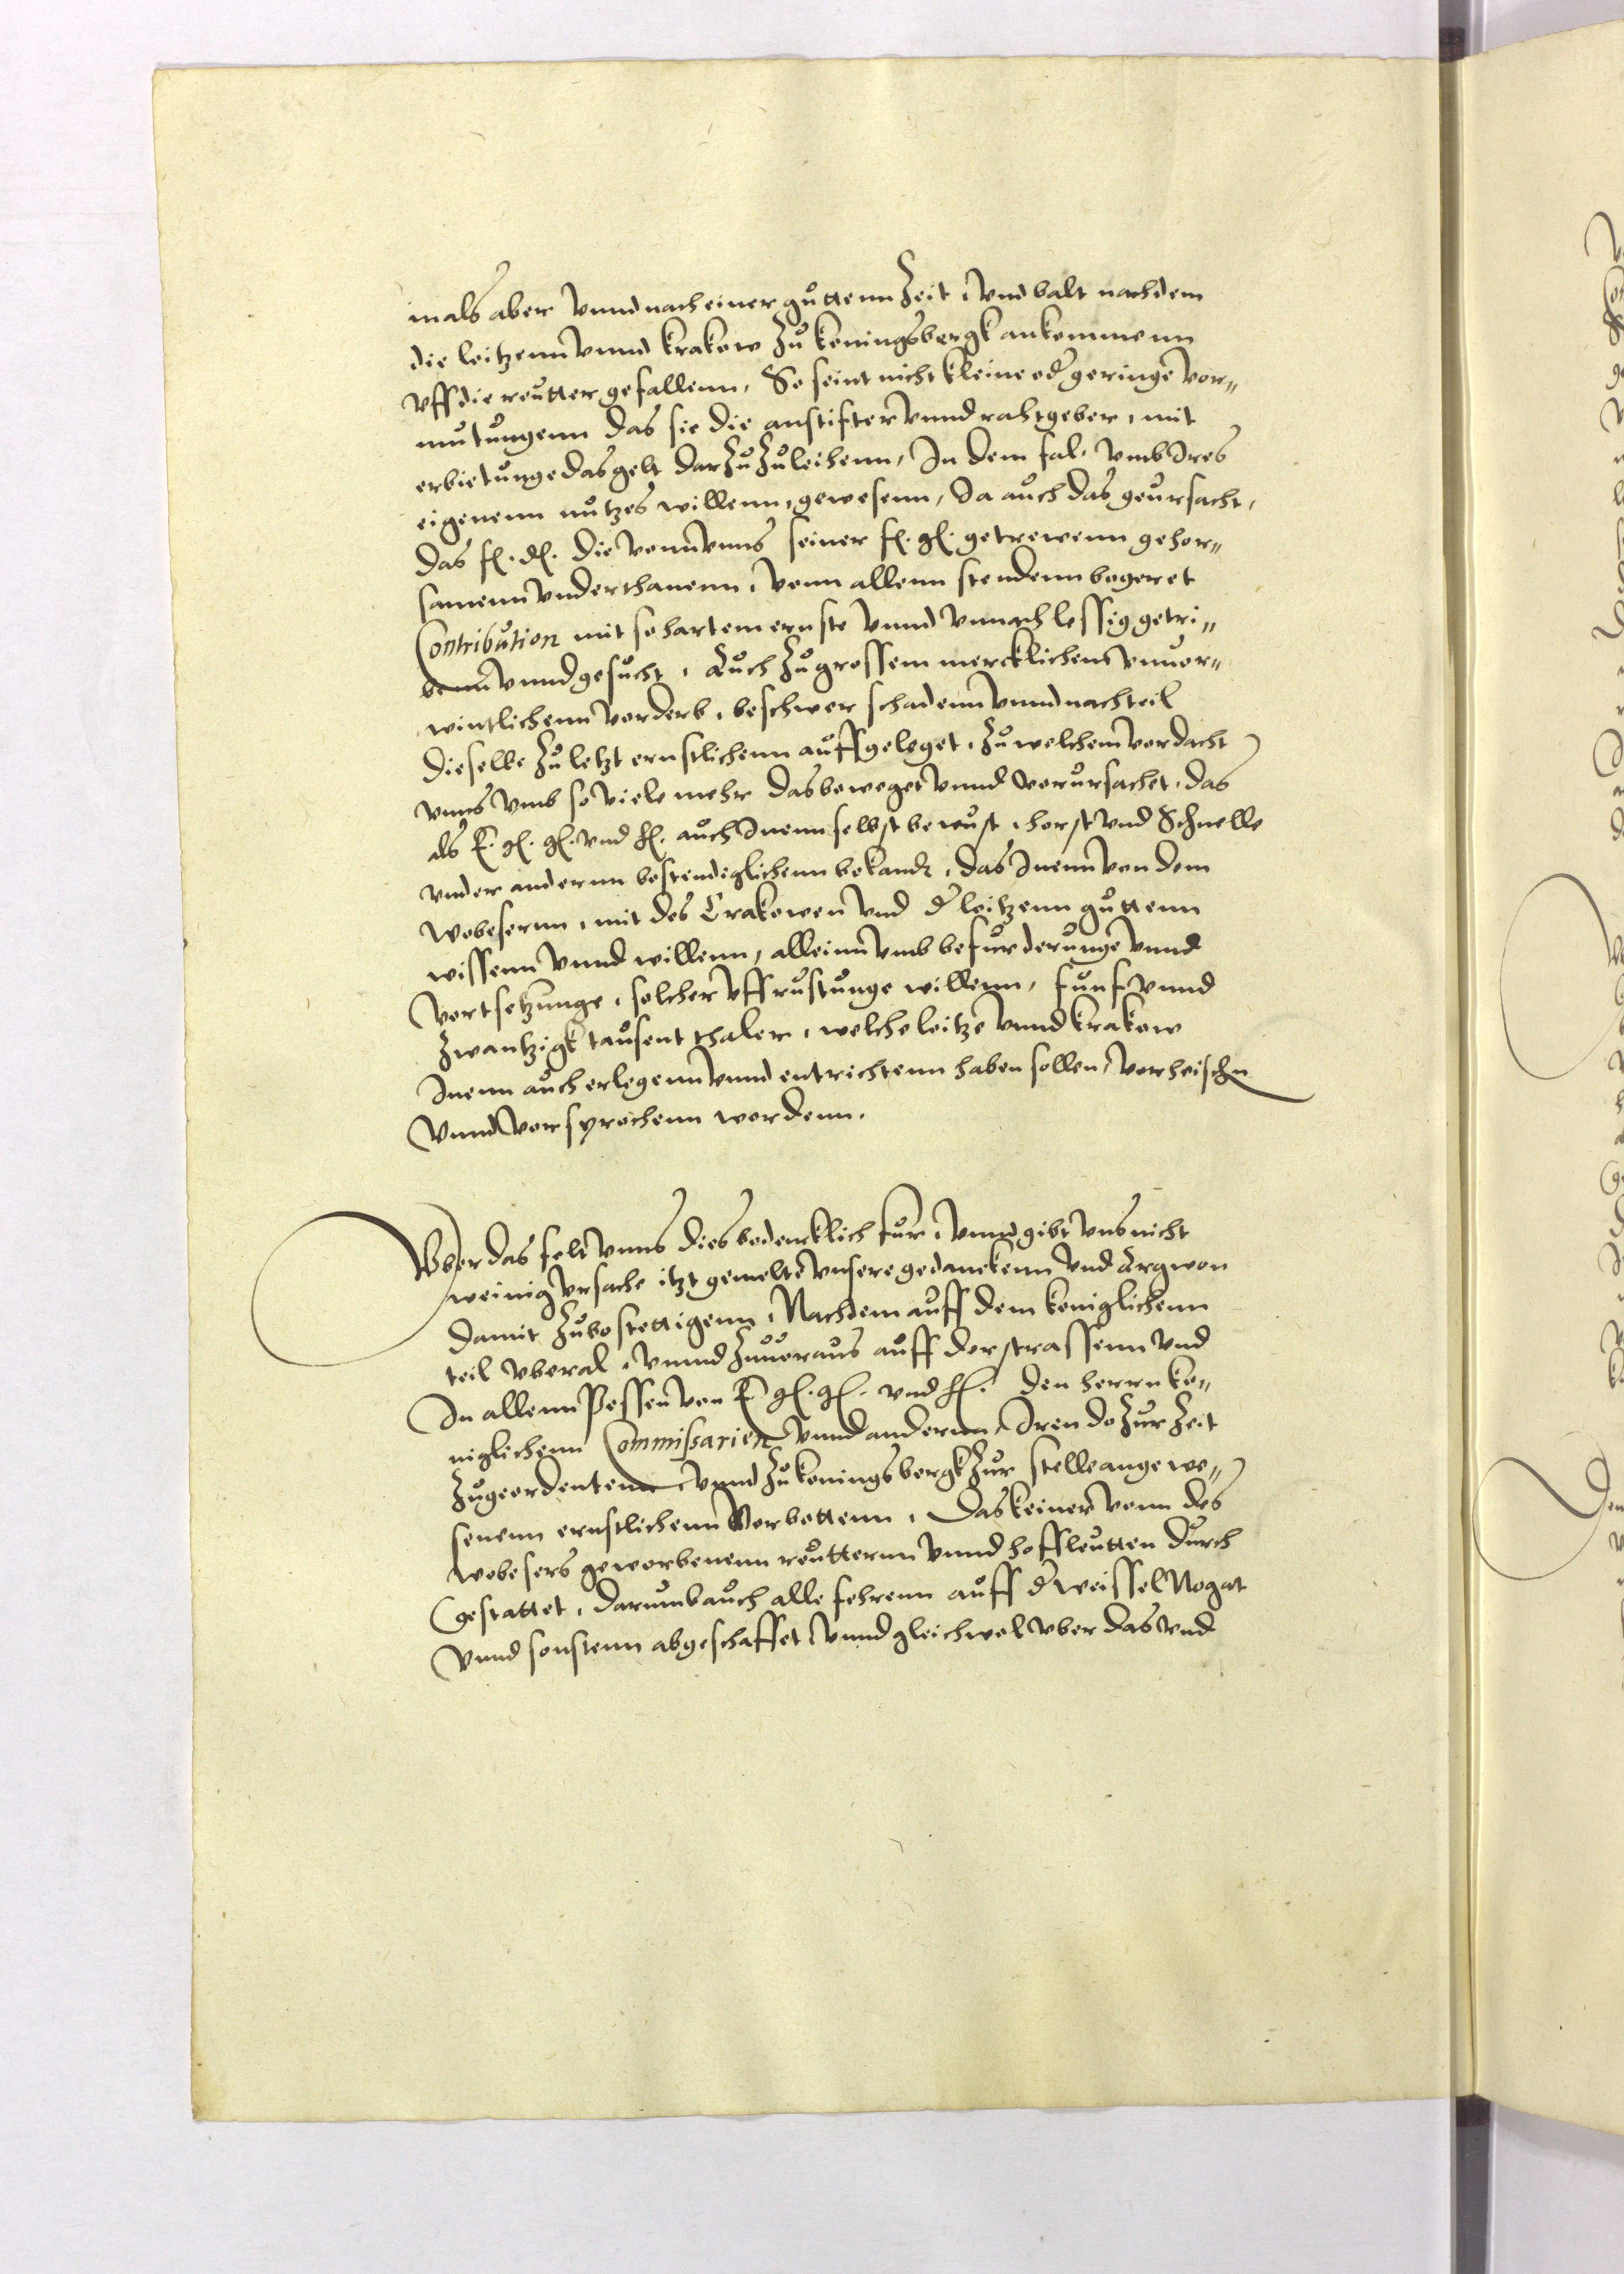 mals aber vnnd nach einer guttenn Zeit, vnd balt nachdem
die leitzenn vnnd krakow zu koningsbergk ankommenn
vff die reutter gefallenn, So seint nicht kleine od geringe vor„
mutungenn das sie die anstifter vnnd rahtgeber, mit
erbietunge das gelt darzu zuleihenn, In dem fal, vmb Ires
eigenenn nutzes willenn, gewesenn, Da auch das geursacht,
das f. d. die vonn vnns seiner f. g. getrewenn gehor„
samenn vnderthanenn, vonn allenn stendenn begeret
Contribution mit so hartem ernste vnnd vnnachlessig getri„
benn vnnd gesucht, Auch zu grossem mercklichenn vnuor„
wintlichenn vorderb, beschwer schadenn vnnd nachteil
dieselbe zu letzt ernstlichenn auffgeleget, zu welchem vordacht
vnns vmb so viele mehr das beweget vnnd vorursachet, das
als E. g. g. vnd h. auch Inenn selbst bewust, horst vnd Schnelle
vnder anderm bestendiglichenn bekandt, das Inenn von dem
wobesernn, mit des Crakowen vnd d leitzenn guttenn
wissenn vnnd willenn, alleinn vmb befurderunge vnnd
vortsetzunge, solcher vffrustunge willenn, funf vnnd
zwantzigk tausent thaler, welche leitze vnnd krakow
Inenn auch erlegenn vnnd entrichtenn haben sollen, vorheischn
vnnd vorsprochenn wordenn.
Vber das felt vnns dies bedencklich fur, vnnd gibt vns nicht
weinig vrsache itzt gemelte vnsere gedanckenn vnd Argwon
damit zubestettigenn, Nachdem auff dem koniglichenn
teil vberal, vnnd zuuoraus auff der strassenn vnd
In allenn Pessen von E g. g. vnd h. den herrn ko„
niglichenn Commissarien vnnd anderenn, Iren do zur Zeit
zugeordentenn, vnnd zu koningsbergk zur stelle angewe„
senenn ernstlichenn Vorbottenn, Das keiner vonn des
wobesers geworbenenn reutternn vnnd hoffleutten durch
gestattet, darumb auch alle fehrenn auff d weissel Nogat
vnnd sonstenn abgeschaffet, vnnd gleichwol vber das vnd